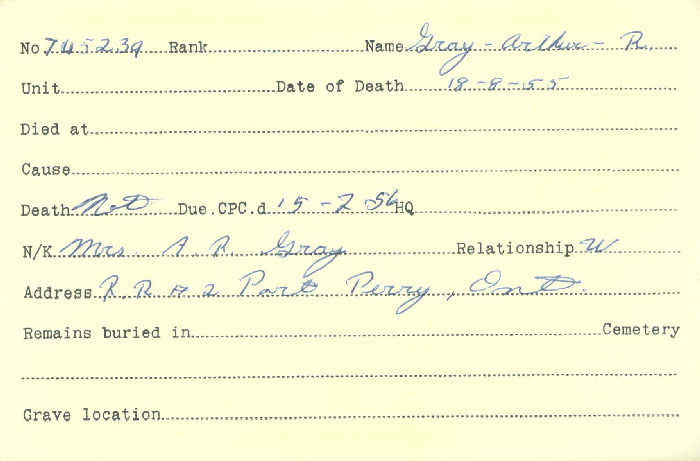 No 745239 Rank Name Gray - Arthur - R.
Unit Date of Death 18-8-55
Died at
Cause
Death Not Due CPC.d 15-2 56 HQ
N/K Mrs A. R. Gray Relationship W
Address R.R # 2 Port Perry, Ont.
Remains buried in Cemetery
Grave location